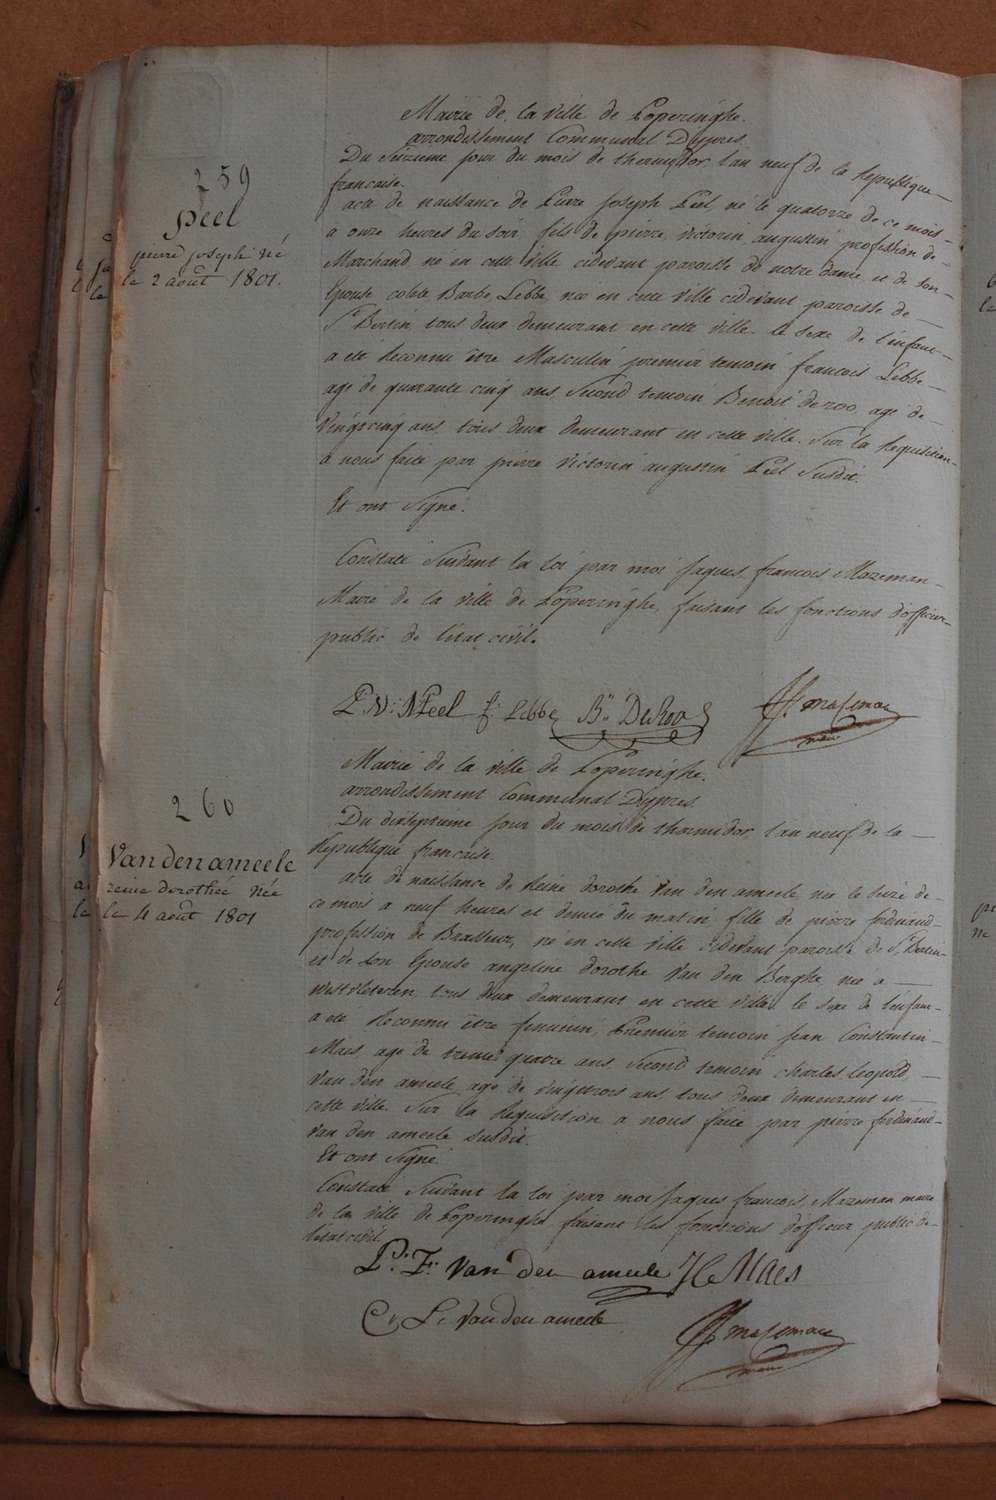 259
Peel
pierre joseph né
le 2 août 1801.
Mairie de la ville de Poperinghe.
arrondissement Communal Dypres
Du Seizieme jour du mois de thermidor lan neuf de la Republique
francaise.
acte de naissance de Pierre Joseph Peel né le quatorze de ce mois
a onze heures du soir, fils de pierre victorin augustin profession de
Marchand né en cette ville cidevant paroisse de notre dame et de son
Epouse colete Barbe Lebbe née en cette ville cidevant paroisse de
St Bertin tous deux demeurant en cette ville. le sexe de l'enfant
a eté reconnu être Masculin premier temoin francois Lebbe
age de quarante cinq ans Second temoin Benoit deroo agé de
vingt cinq ans tous deux demeurant en cette ville. Sur la Requisition
a nous faite par pierre victorin augustin Peel Susdit.
Et ont signé.
Constaté Suivant la loi par moi Jaques francois Mazeman
Maire de la ville de Poperinghe, faisant les fonctions d'officier
public de l'état civil.
P: V: A Peel f: Lebbe Bn DeRoo JF mazeman
maire
260
Vandenameele
reine dorothée née
le 4 août 1801
Mairie de la ville de Poperinghe.
arrondissement Communal Dypres
Du dixseptieme jour du mois de thermidor lan neuf de la
Republique francaise.
acte de naissance de Reine dorothe Van den ameele née le seize de
ce mois a neuf heures et demie du matin fille de pierre ferdinand
profession de Brasseur, né en cette ville cidevant paroisse de St Bertin
et de son Epouse angeline dorothe Van den Berghe née a
westvleteren tous deux demeurant en cette ville le sexe de l'enfant
a eté Reconnu être feminin, Premier temoin Jean Constantin
Maes age de trente quatre ans Second temoin charles Leopold
Van den ameele age de vingt trois ans tous deux demeurant en
cette ville. Sur la Requisition a nous faite par pierre ferdinand
Van den ameele susdit.
Et ont signé
Constaté Suivant la loi par moi Jaques francois Mazeman maire
de la ville de Poperinghe faisant les fonctions d'officier public de
l'état civil.
P: F: Van den ameele JC Maes
C, L, Van den ameele JF mazeman
maire